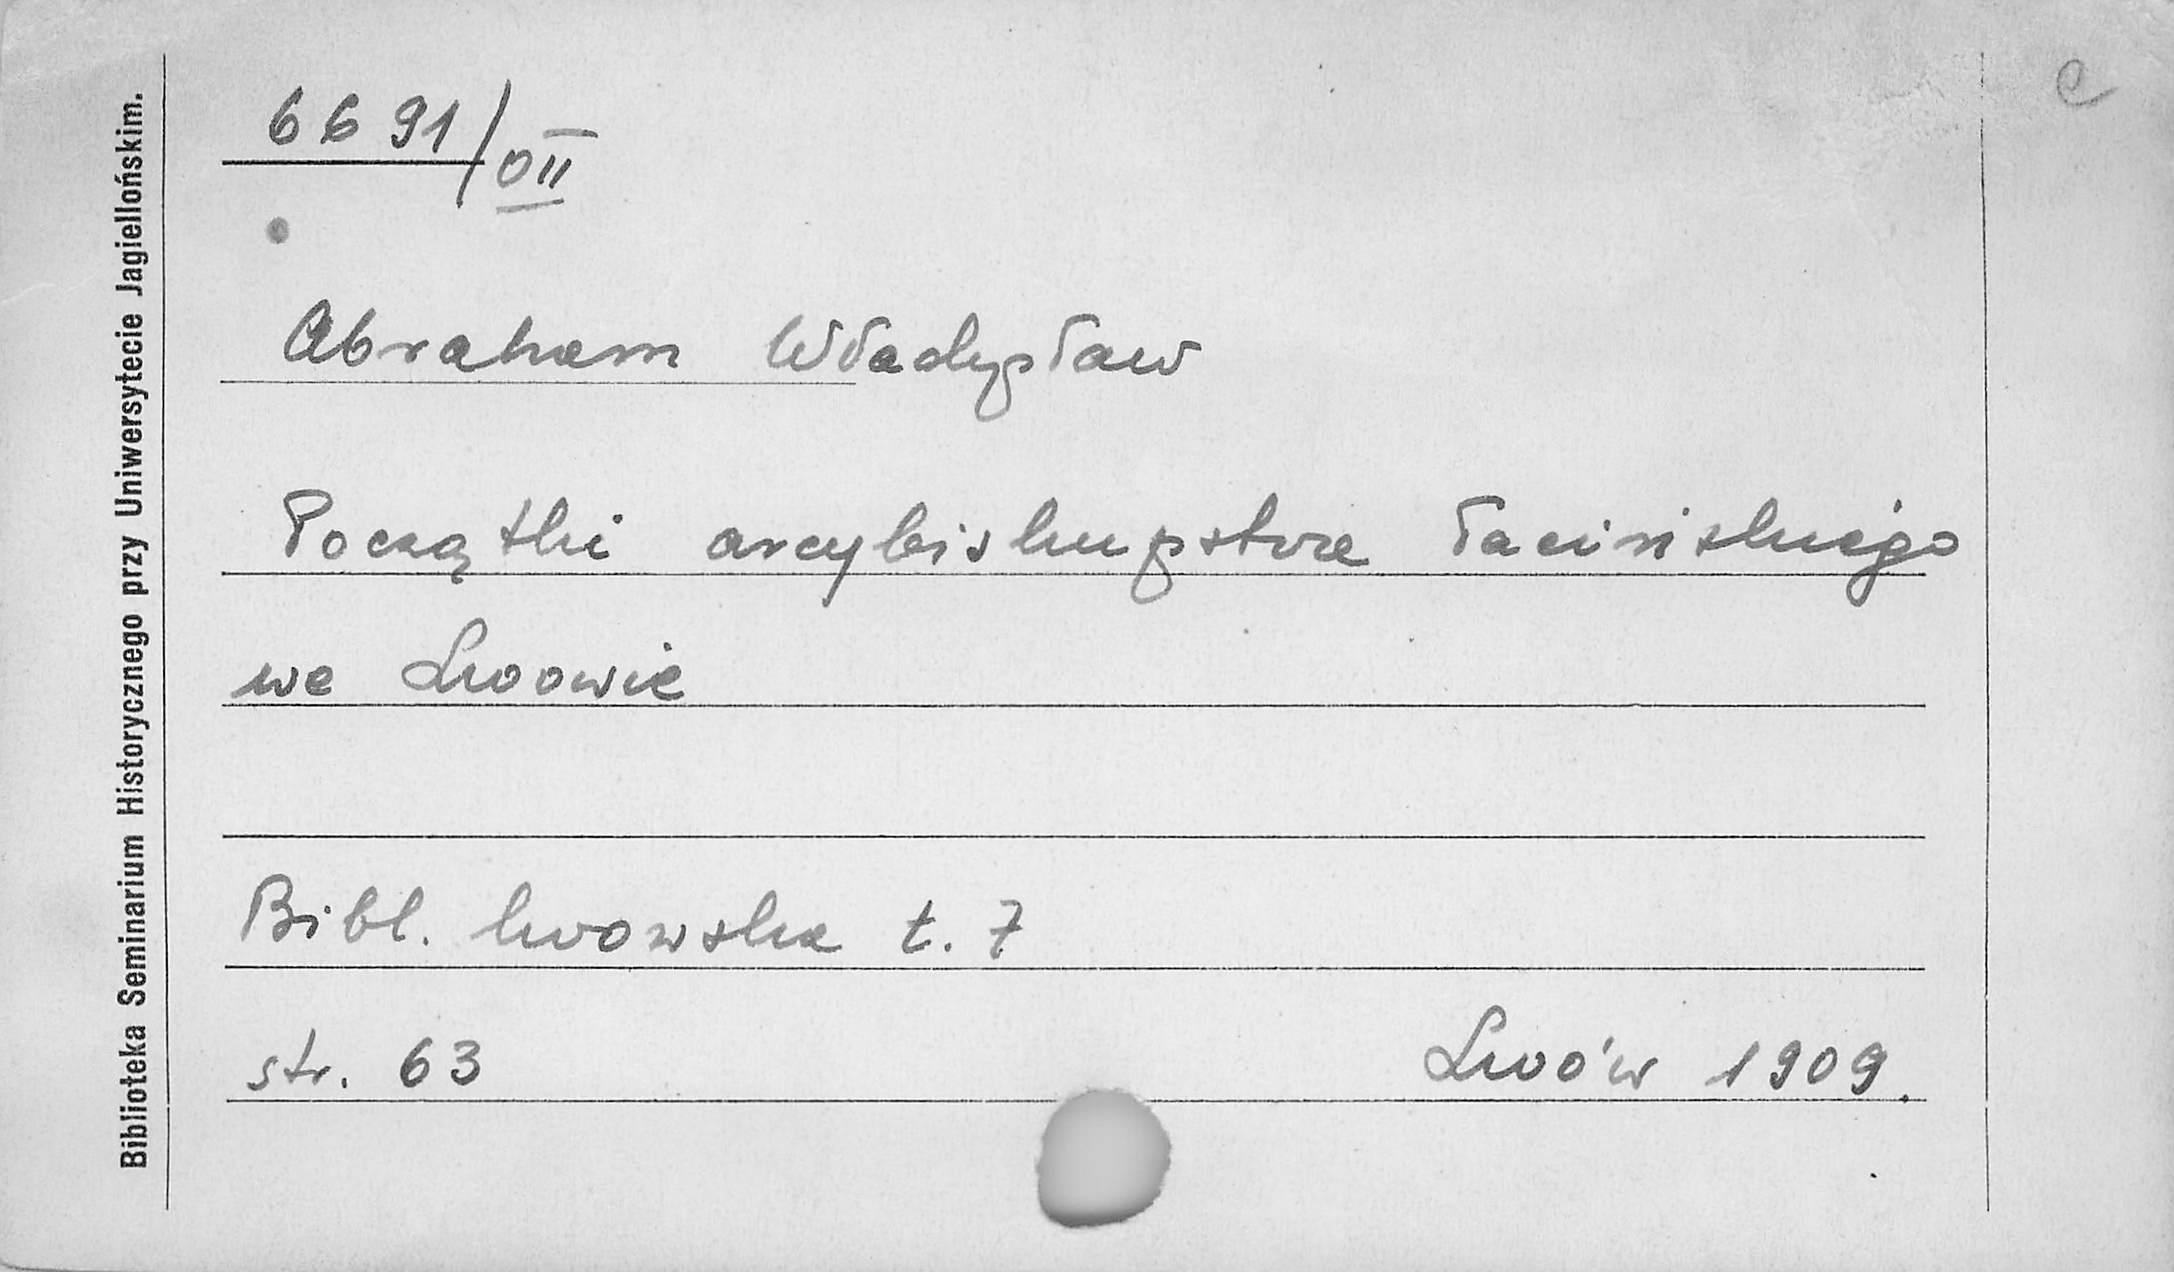 6691/OII
c
Abraham Władysław
Początki arcybiskupstwa łacińskiego
we Lwowie
Bibl. lwowska t. 7
str. 63 Lwów 1909.
Biblioteka Seminarium Historycznego przy Uniwersytecie Jagiellońskim.